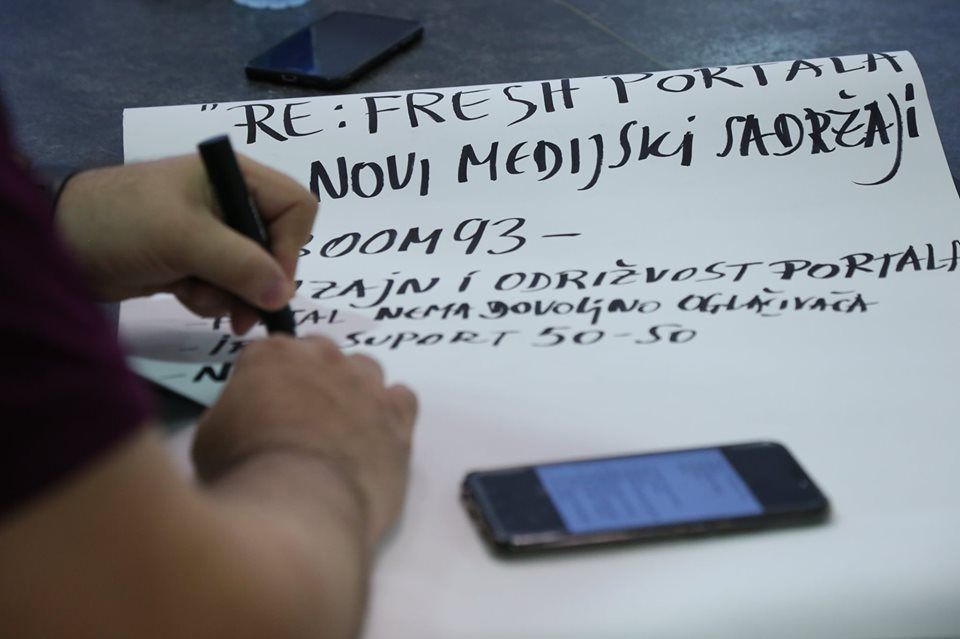 "RE: FRESH PORTALA
NOVI MEDIJSKI SADRŽAJI
BOOM93 –
I ODRIŽVOST PORTALA
NEMA DOVOLJNO OGLAŠIVAČA
SUPORT 50-50